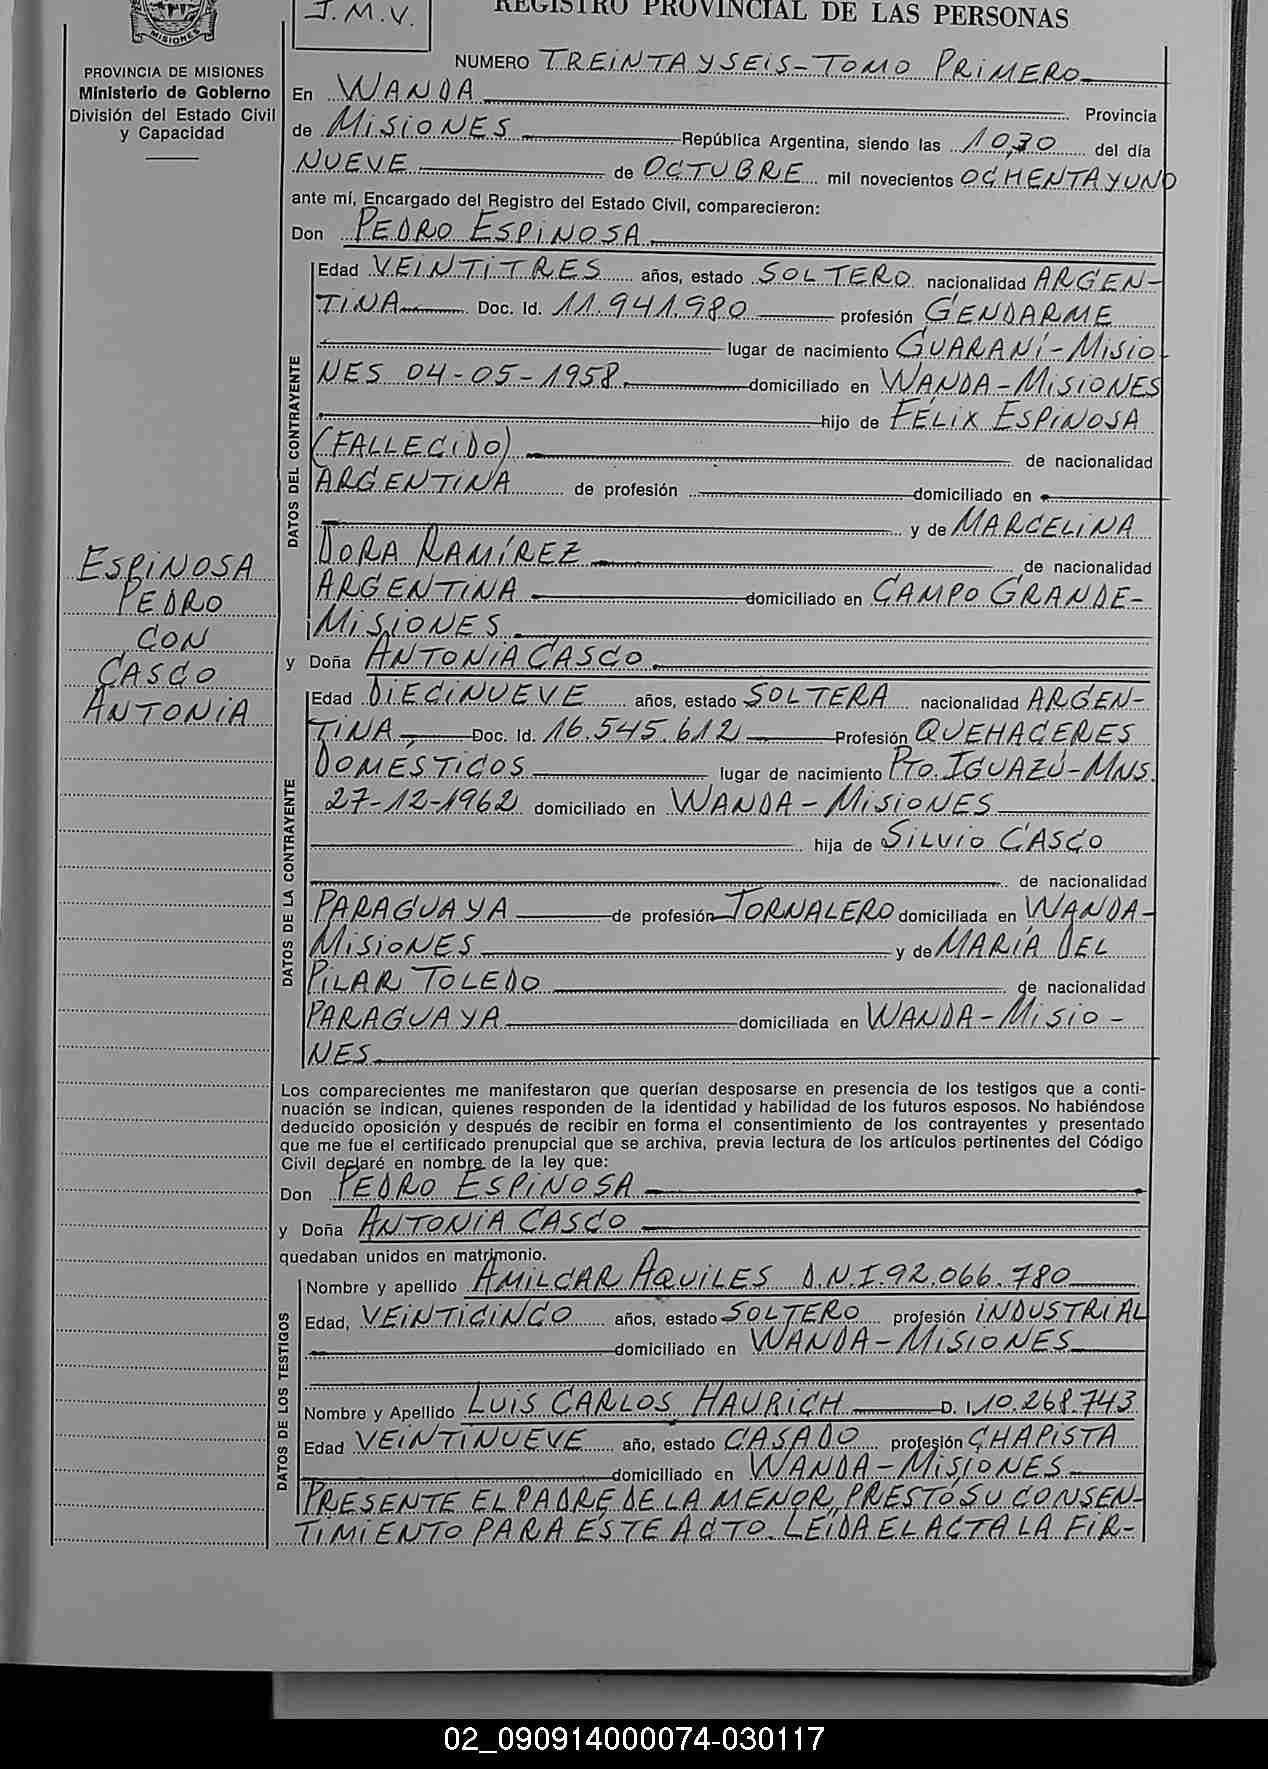 MISIONES
J.M.V.
REGISTRO PROVINCIAL DE LAS PERSONAS
PROVINCIA DE MISIONES
Ministerio de Gobierno
División del Estado Civil
y Capacidad
ESPINOSA
PEDRO
CON
CASCO
ANTONIA
NUMERO TREINTA Y SEIS - TOMO PRIMERO
En WANDA Provincia
de MISIONES República Argentina, siendo las 10,30 del día
NUEVE de OCTUBRE mil novecientos OCHENTA Y UNO
ante mí, Encargado del Registro del Estado Civil, comparecieron:
Don PEDRO ESPINOSA
DATOS DEL CONTRAYENTE
Edad VEINTITRES años, estado SOLTERO nacionalidad ARGEN-
TINA Doc. Id. 11.941.980 profesión GENDARME
lugar de nacimiento GUARANÍ - MISIO
NES 04-05-1958 domiciliado en WANDA - MISIONES
hijo de FÉLIX ESPINOSA
(FALLECIDO) de nacionalidad
ARGENTINA de profesión domiciliado en
y de MARCELINA
DORA RAMÍREZ de nacionalidad
ARGENTINA domiciliado en CAMPO GRANDE-
MISIONES
y Doña ANTONIA CASCO
DATOS DE LA CONTRAYENTE
Edad DIECINUEVE años, estado SOLTERA nacionalidad ARGEN-
TINA Doc. Id. 16.545.612 Profesión QUEHACERES
DOMÉSTICOS lugar de nacimiento PTO. IGUAZÚ - MNS.
27-12-1962 domiciliado en WANDA - MISIONES
hija de SILVIO CASCO
de nacionalidad
PARAGUAYA de profesión JORNALERO domiciliada en WANDA-
MISIONES y de MARÍA DEL
PILAR TOLEDO de nacionalidad
PARAGUAYA domiciliada en WANDA - MISIO-
NES
Los comparecientes me manifestaron que querían desposarse en presencia de los testigos que a conti-
nuación se indican, quienes responden de la identidad y habilidad de los futuros esposos. No habiéndose
deducido oposición y después de recibir en forma el consentimiento de los contrayentes y presentado
que me fue el certificado prenupcial que se archiva, previa lectura de los artículos pertinentes del Código
Civil declaré en nombre de la ley que:
Don PEDRO ESPINOSA
y Doña ANTONIA CASCO
quedaban unidos en matrimonio.
DATOS DE LOS TESTIGOS
Nombre y apellido AMILCAR AQUILES D.N.I. 92.066.780
Edad, VEINTICINCO años, estado SOLTERO profesión INDUSTRIAL
domiciliado en WANDA - MISIONES
Nombre y Apellido LUIS CARLOS HAURICH D. I. 10.268.743
Edad VEINTINUEVE año, estado CASADO profesión CHAPISTA
domiciliado en WANDA - MISIONES
PRESENTE EL PADRE DE LA MENOR, PRESTÓ SU CONSEN-
TIMIENTO PARA ESTE ACTO. LEÍDA EL ACTA LA FIR-
02_090914000074-030117